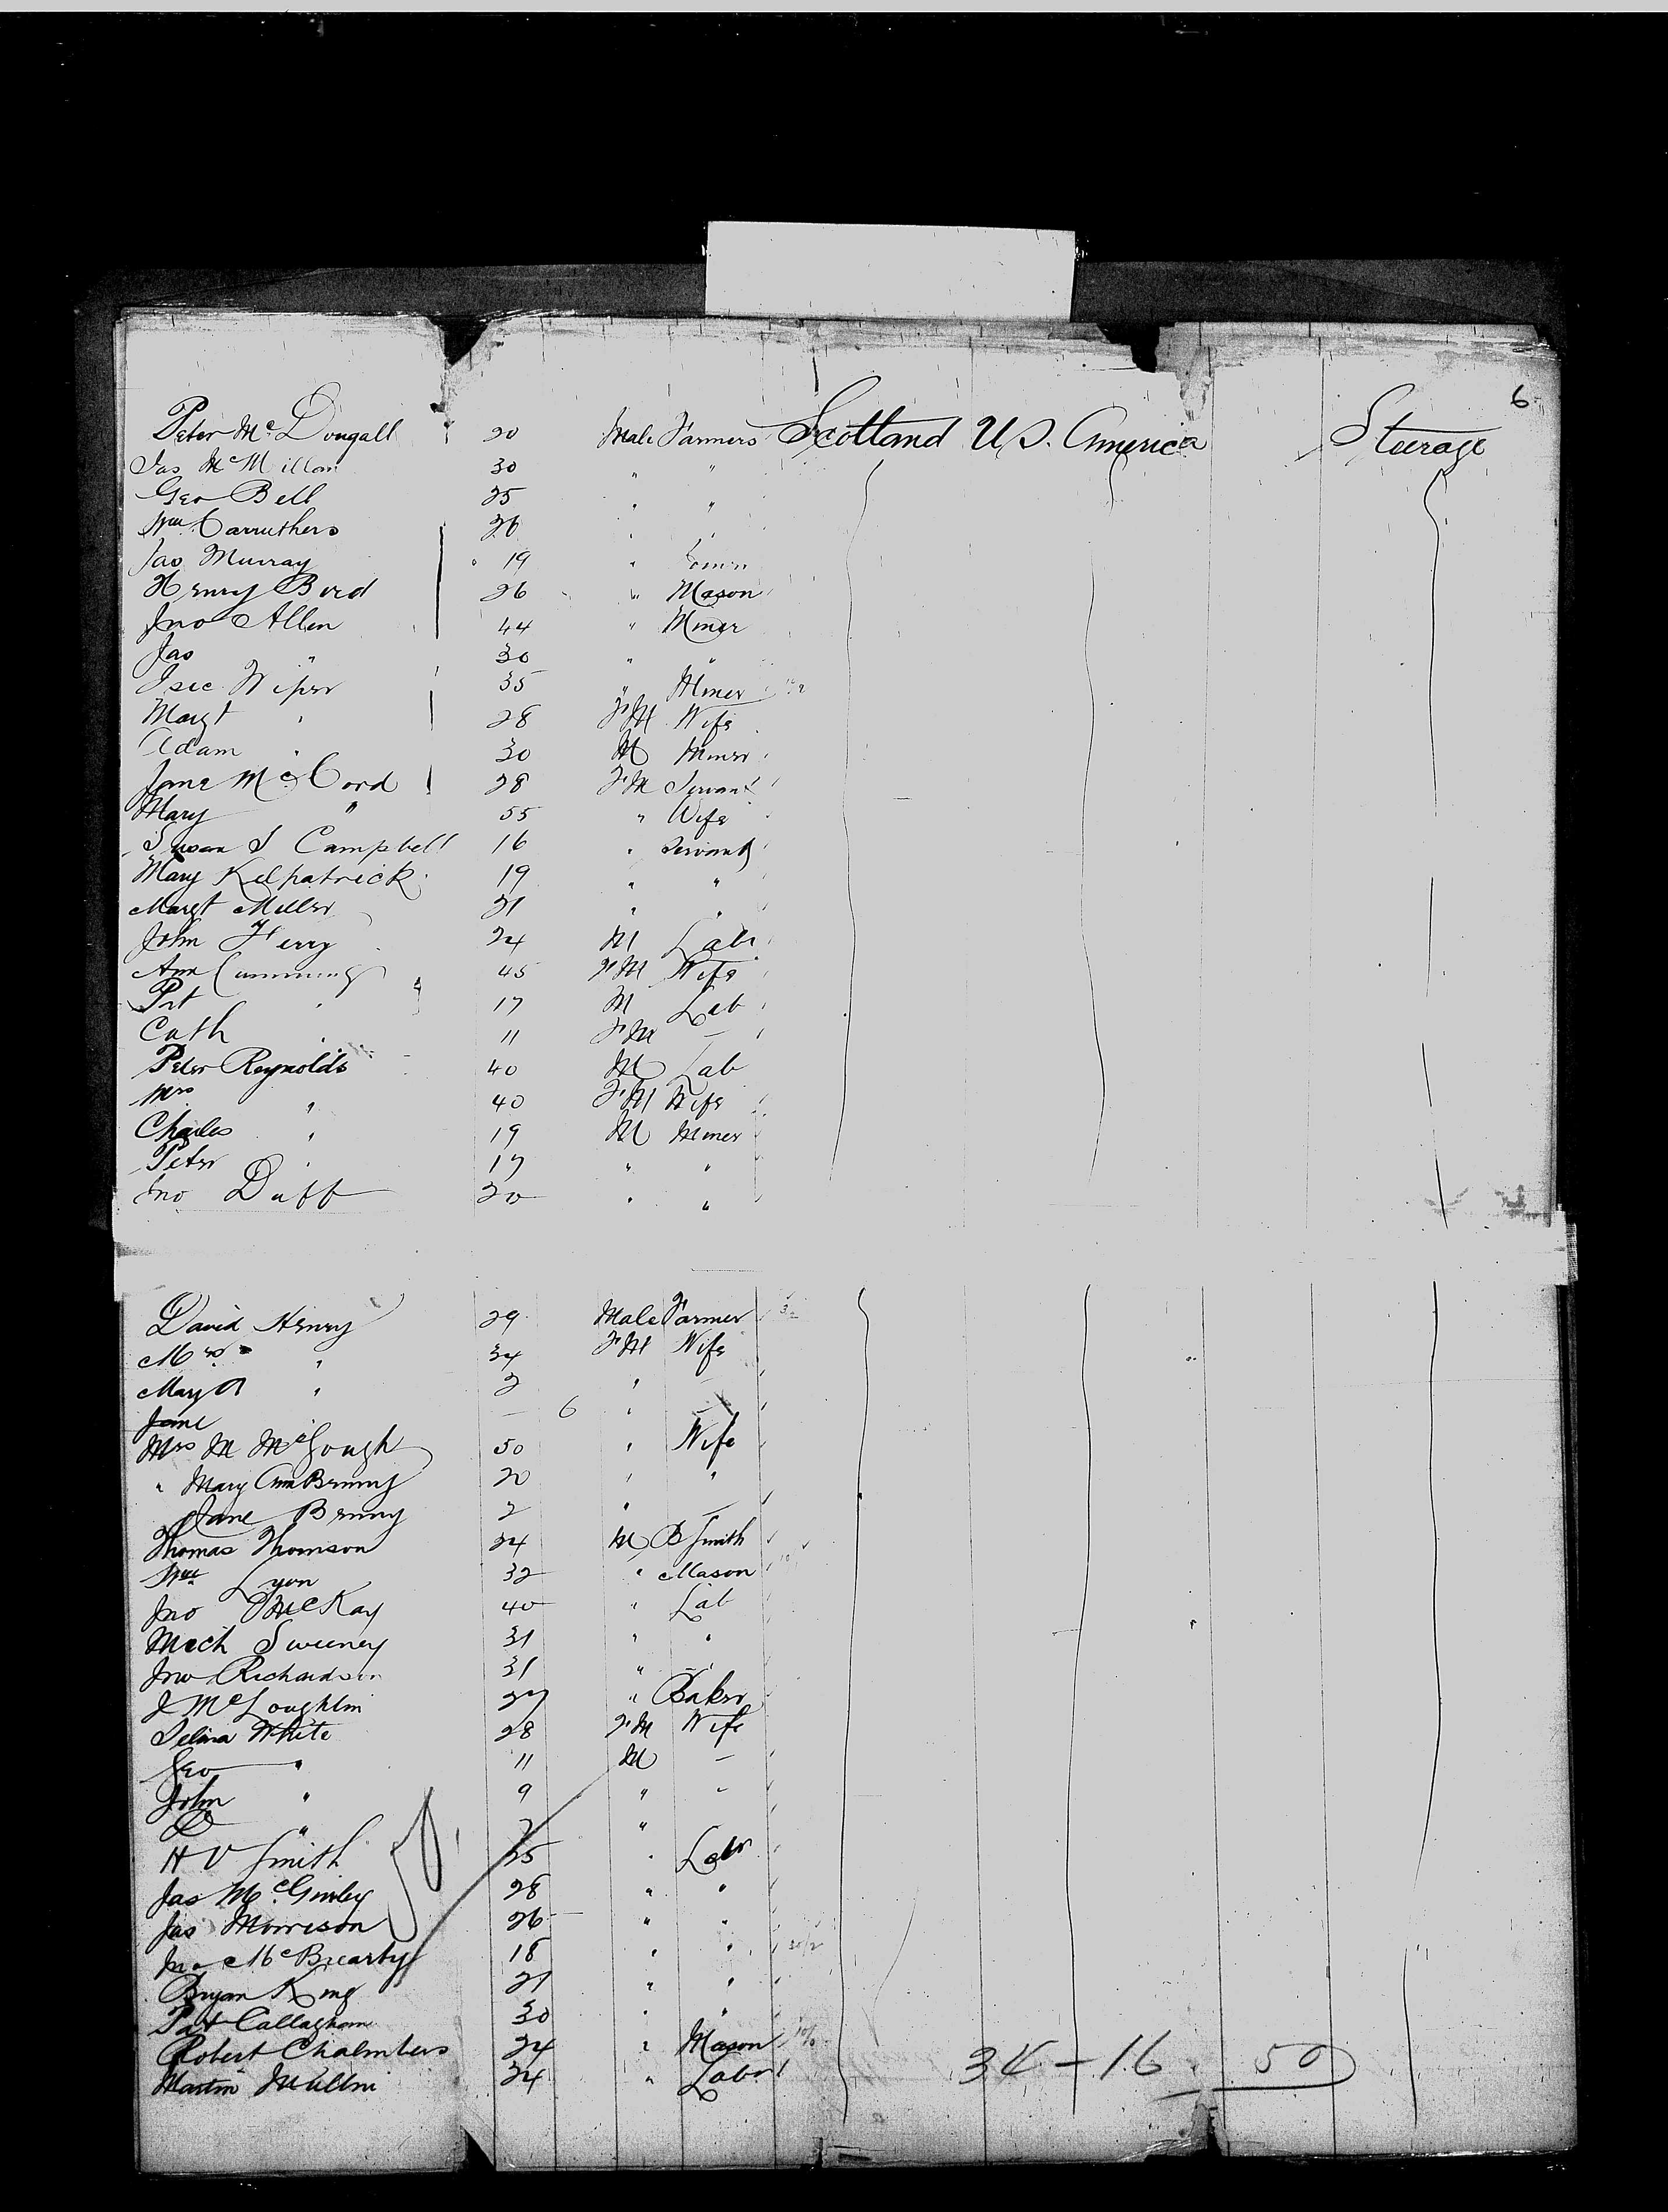 6
Peter Mc Dougall 20 Male Farmers Scotland U.S. America Steerage
Jas McMillan 30 " "
Geo Bell 25 " "
Wm Carruthers 26 " "
Jas Murray 19 "
Henry Bird 26 " Mason
Jno Allen 44 " Miner
Jas " 30 " "
35 " Miner
Margt " 28 FM Wife
Adam " 30 M Miner
Jane McCord 28 FM Servant
Mary " 55 " Wife
Susan S Campbell 16 " Servant
Mary Kilpatrick 19 " "
Margt Miller 21 " "
John Ferry 24 M Labr
Ann Cumming 45 FM Wife
Pat " 17 M Lab
Cath " 11 FM —
Peter Reynolds 40 M Lab
Mrs " 40 FM Wife
Charles " 19 M Miner
Peter " 17 " "
Jno Duff 20 " "
David Henry 29 Male Farmer
Mrs " 34 FM Wife
Mary A " 2 " —
Jane — 6 " —
Mrs M McGough 50 " Wife
" Mary Ann Benny 20 " "
Jane Benny 2 " —
Thomas Thomson 24 M B Smith
Wm Lyon 32 " Mason
Jno McKay 40 " Lab
Mich Sweeney 31 " "
Jno Richardson 31 " "
J McLoughlin 27 " Baker
Selina White 28 FM Wife
Geo " 11 M —
John " 9 " —
" "
H V Smith 25 " Labr
Jas McGinley 28 " "
Jas Morrison 26 " "
Jno McBrearty 18 " "
Bryan King 21 " "
Pat Callaghan 30 " "
Robert Chalmbers 24 " Mason
Martin Mullin 24 " Labr 34 — 16 50